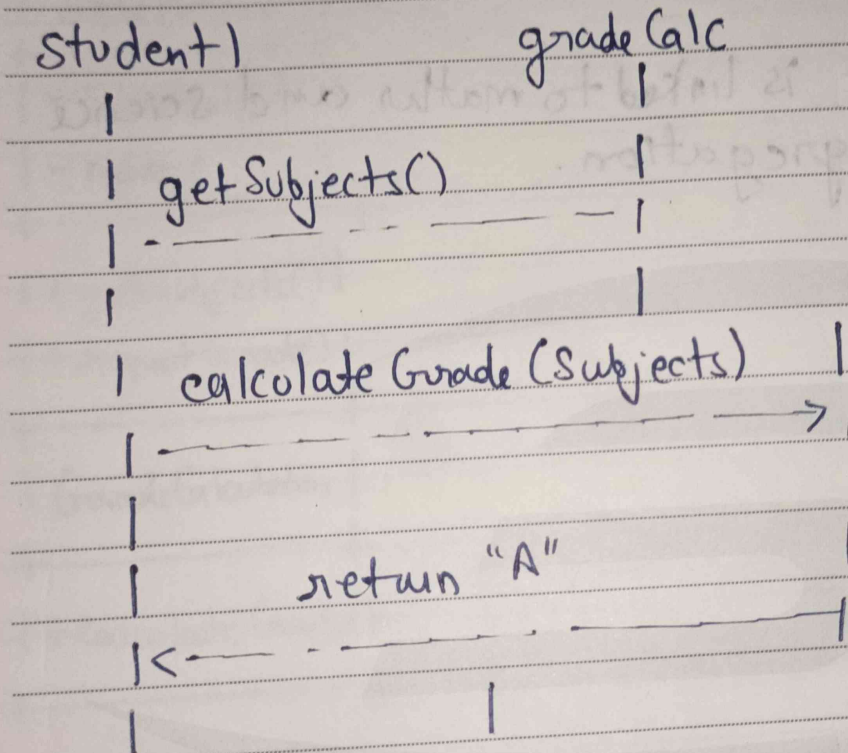 student1 gradeCalc
getSubjects()
calculate Grade (Subjects)
return "A"